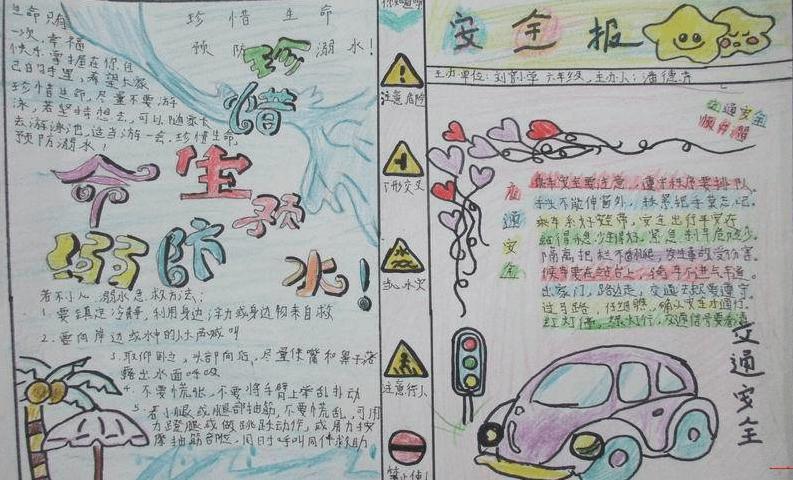 珍惜生命
预防溺水!
生命只有
一次,幸福
快乐掌握在你自
己的手里,希望大家
珍惜生命,尽量不要游
泳,若坚持想去,可以随家长
去游泳池,适当游一会,珍惜生命
预防溺水!
珍
惜
生
命
预
防
溺
水!
若不小心溺水急救方法:
1.要镇定冷静,利用身边浮力或身边物来自救
2.要向岸边或水中的人大声喊叫
3.取仰卧位,头部向后,尽量使嘴和鼻子落
露出水面呼吸
4.不要慌张,不要将手臂上举乱扑动
5.若小腿或腿部抽筋,不要慌乱,可用
力蹬腿或做跳跃动作,或用力按
摩抽筋部位,同时呼叫同伴救助
注意危险
丁形交叉
注意行人
安全报
主办单位:刘 小学 六年级,主办人:潘德
交通安全
顺
交
通
安
全
乘车安全要注意,遵守秩序要排队。
手头不能伸窗外,扶紧把手莫忘记。
隔离护栏不翻越,发生事故受伤害。
候车要在站台上,骑车不进
出家门,路边走,交通法规要遵守
过马路,仔细瞧,确认安全才通行。
红灯停,绿灯行,交通信号要看清
交通安全